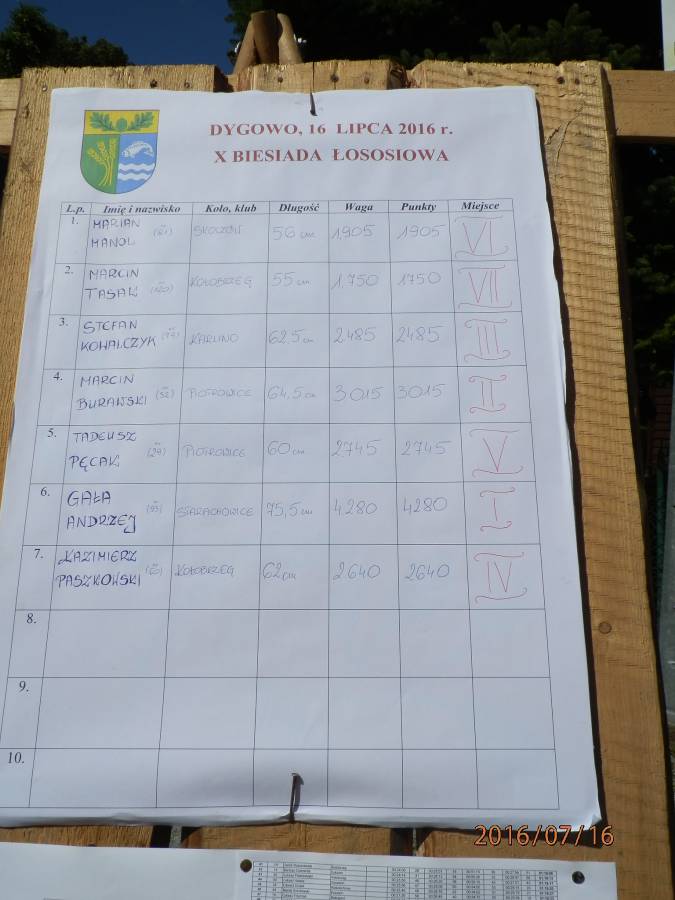 DYGOWO, 16 LIPCA 2016 r.
X BIESIADA ŁOSOSIOWA
L.p. Imię i nazwisko Koło, klub Długość Waga Punkty Miejsce
1. MARIAN MANOL SKOCZÓW 56 cm 1,905 1905 VI
2. MARCIN TASAK KOŁOBRZEG 55 cm 1,750 1750 VII
3. STEFAN KOWALCZYK KARLINO 62,5 cm 2485 2485 III
4. MARCIN BURAWSKI (52) PIOTROWICE 64,5 cm 3015 3015 II
5. TADEUSZ PĘCAK (29) PIOTROWICE 60 cm 2745 2745 V
6. GAŁA ANDRZEJ (93) STARACHOWICE 75,5 cm 4280 4280 I
7. KAZIMIERZ PASZKOWSKI KOŁOBRZEG 62 cm 2640 2640 IV
8.
9.
10.
2016/07/16